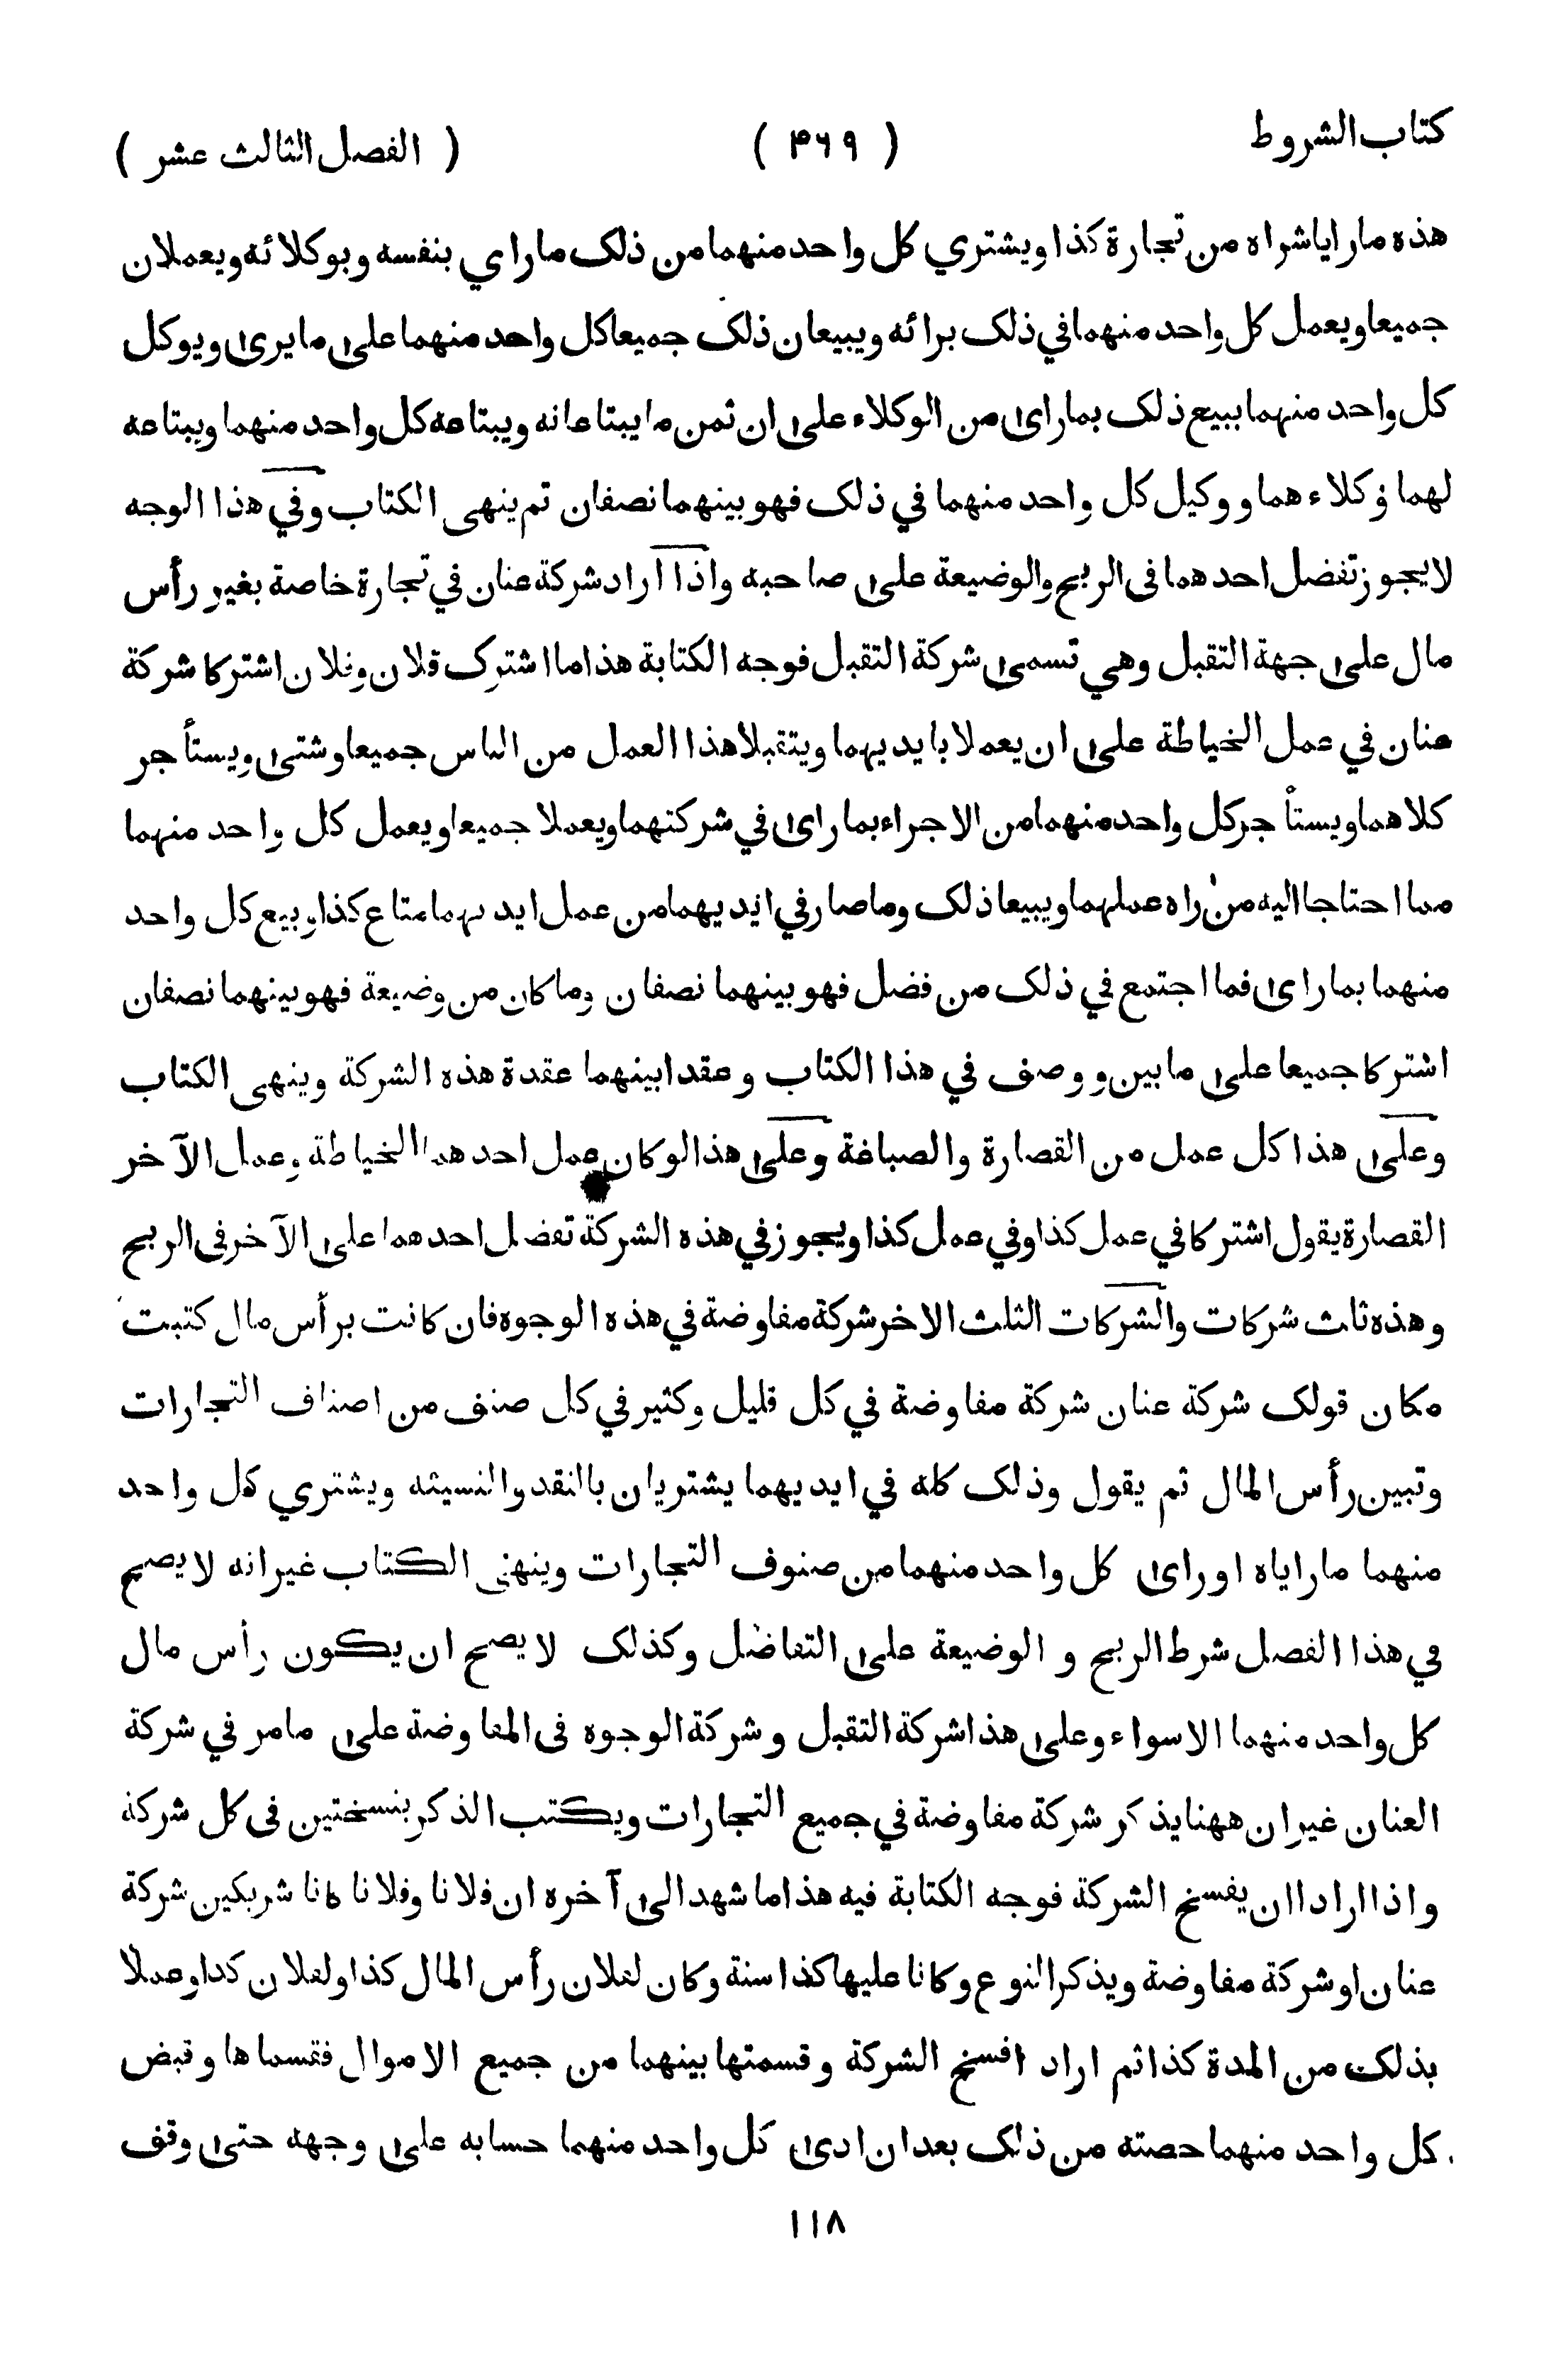 كتاب الشروط ( ۴۶۹ ) ( الفصل الثالث عشر )
هذه مارايا شراه من تجارة كذا ويشتري كل واحد منهما من ذلك ماراي بنفسه وبوكلائه ويعملان
جميعا ويعمل كل واحد منهما في ذلك برائه ويبيعان ذلك جميعا كل واحد منهما على مايرى ويوكل
كل واحد منهما ببيع ذلك بماراى من الوكلاء على ان ثمن ما يبتاعانه ويبتاعه كل واحد منهما ويبتاعه
لهما وكلاءهما ووكيل كل واحد منهما في ذلك فهو بينهما نصفان ثم ينهي الكتاب وفي هذا الوجه
لايجوز تفضل احدهما فى الربح والوضيعة على صاحبه واذا اراد شركة عنان في تجارة خاصة بغير رأس
مال على جهة التقبل وهي تسمى شركة التقبل فوجه الكتابة هذا ما اشترك فلان وفلان اشتركا شركة
عنان في عمل الخياطة على ان يعملا بايديهما ويتقبلا هذا العمل من الناس جميعا وشتى ويستأجر
كلاهما ويستأجر كل واحد منهما من الاجراء بماراى في شركتهما ويعملا جميعا ويعمل كل واحد منهما
مما احتاجا اليه من راه عملهما ويبيعا ذلك وما صار في ايديهما من عمل ايديهما متاع كذا وبيع كل واحد
منهما بماراى فما اجتمع في ذلك من فضل فهو بينهما نصفان وما كان من وضيعة فهو بينهما نصفان
اشتركا جميعا على ما بين ووصف في هذا الكتاب وعقدا بينهما عقدة هذه الشركة وينهى الكتاب
وعلى هذا كل عمل من القصارة والصباغة وعلى هذا لو كان عمل احدهما الخياطة وعمل الآخر
القصارة يقول اشتركا في عمل كذا وفي عمل كذا ويجوز في هذه الشركة تفضل احدهما على الآخر فى الربح
وهذه ثلث شركات والشركات الثلث الاخر شركة مفاوضة في هذه الوجوه فان كانت برأس مال كتبت
مكان قولك شركة عنان شركة مفاوضة في كل قليل وكثير في كل صنف من اصناف التجارات
وتبين رأس المال ثم يقول وذلك كله في ايديهما يشتريان بالنقد والنسيئه ويشتري كل واحد
منهما ماراياه او راى كل واحد منهما من صنوف التجارات وينهي الكتاب غير انه لا يصح
في هذا الفصل شرط الربح و الوضيعة على التفاضل وكذلك لا يصح ان يكون رأس مال
كل واحد منهما الا سواء وعلى هذا شركة التقبل وشركة الوجوه فى المفاوضة على مامر في شركة
العنان غير ان ههنا يذكر شركة مفاوضة في جميع التجارات ويكتب الذكر بنسختين فى كل شركة
واذا ارادا ان يفسخ الشركة فوجه الكتابة فيه هذا ما شهد الى آخره ان فلانا وفلانا كانا شريكين شركة
عنان او شركة مفاوضة ويذكر النوع وكانا عليها كذا سنة وكان لفلان رأس المال كذا ولفلان كذا وعملا
بذلك من المدة كذا ثم اراد افسخ الشركة وقسمتها بينهما من جميع الاموال فقسماها وقبض
كل واحد منهما حصته من ذلك بعد ان ادى كل واحد منهما حسابه على وجهه حتى وقف
١١٨